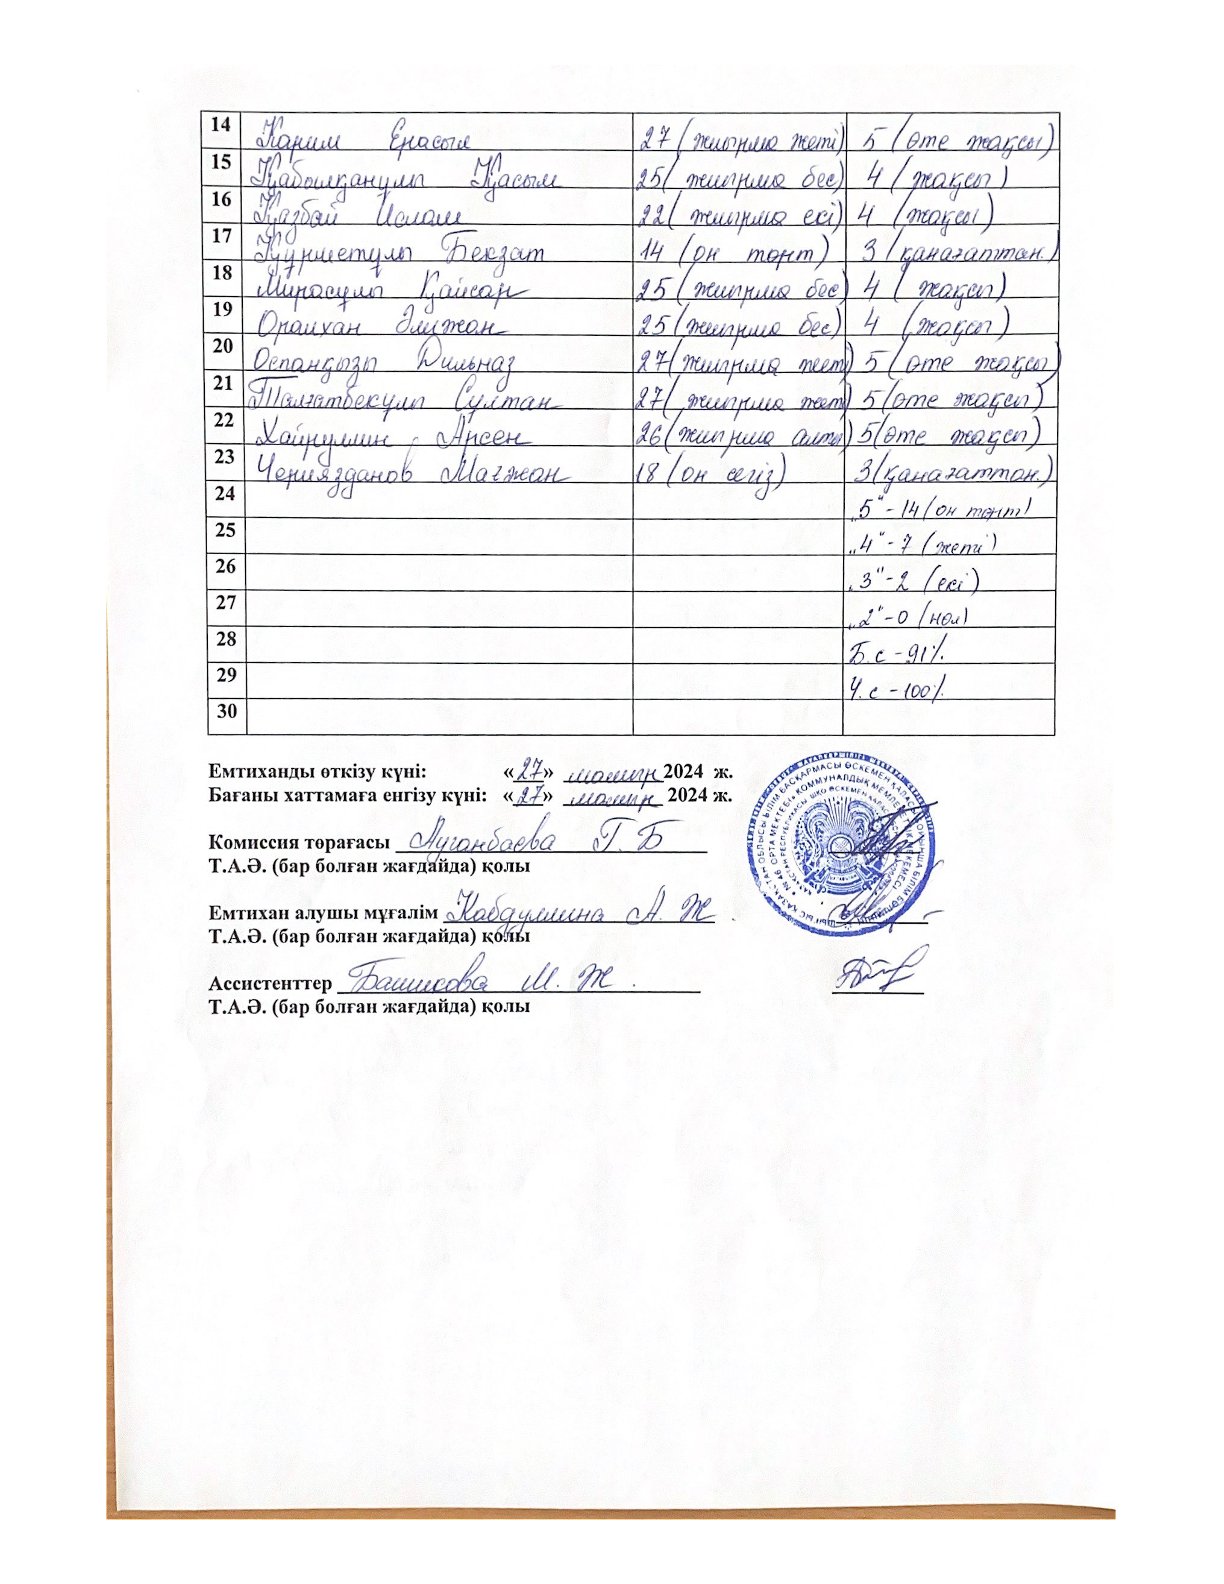 14 Карим Ерасыл 27 (жиырма жеті) 5 (өте жақсы)
15 Қабылқанұлы Қасым 25 (жиырма бес) 4 (жақсы)
16 Қазбай Ислам 22 (жиырма екі) 4 (жақсы)
17 Құрметұлы Бекзат 14 (он төрт) 3 (қанағаттан.)
18 Мирасұлы Қайсар 25 (жиырма бес) 4 (жақсы)
19 Оралхан Әлижан 25 (жиырма бес) 4 (жақсы)
20 Оспанқызы Дильназ 27 (жиырма жеті) 5 (өте жақсы)
21 Талғатбекұлы Сұлтан 27 (жиырма жеті) 5 (өте жақсы)
22 Хайруллин Арсен 26 (жиырма алты) 5 (өте жақсы)
23 Чериязданов Мағжан 18 (он сегіз) 3 (қанағаттан.)
24 „5“ - 14 (он төрт)
25 „4“ - 7 (жеті)
26 „3“ - 2 (екі)
27 „2“ - 0 (нөл)
28 Б.с - 91%
29 Ү.с - 100%
30
Емтиханды өткізу күні: «27» мамыр 2024 ж.
Бағаны хаттамаға енгізу күні: «27» мамыр 2024 ж.
Комиссия төрағасы Ауганбаева Г. Б
Т.А.Ә. (бар болған жағдайда) қолы
Емтихан алушы мұғалім Кабдуллина А. Ж.
Т.А.Ә. (бар болған жағдайда) қолы
Ассистенттер Башикова М. Ж.
Т.А.Ә. (бар болған жағдайда) қолы